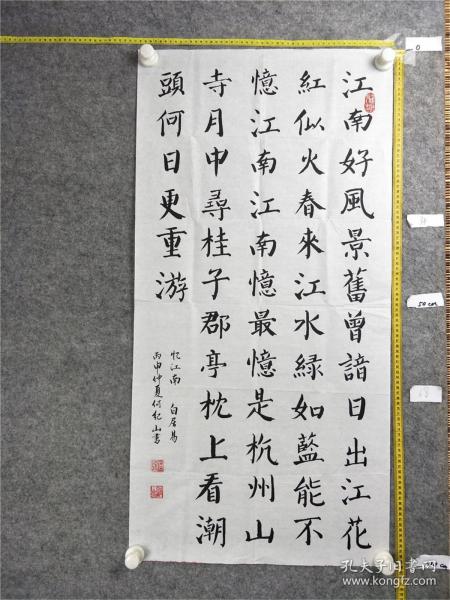 江南好風景舊曾諳日出江花
紅似火春來江水緑如藍能不
憶江南江南憶最憶是杭州山
寺月中尋桂子郡亭枕上看潮
頭何日更重游
忆江南 白居易
丙申仲夏何纪山書
0
50cm
孔夫子旧书网
www.kongfz.com